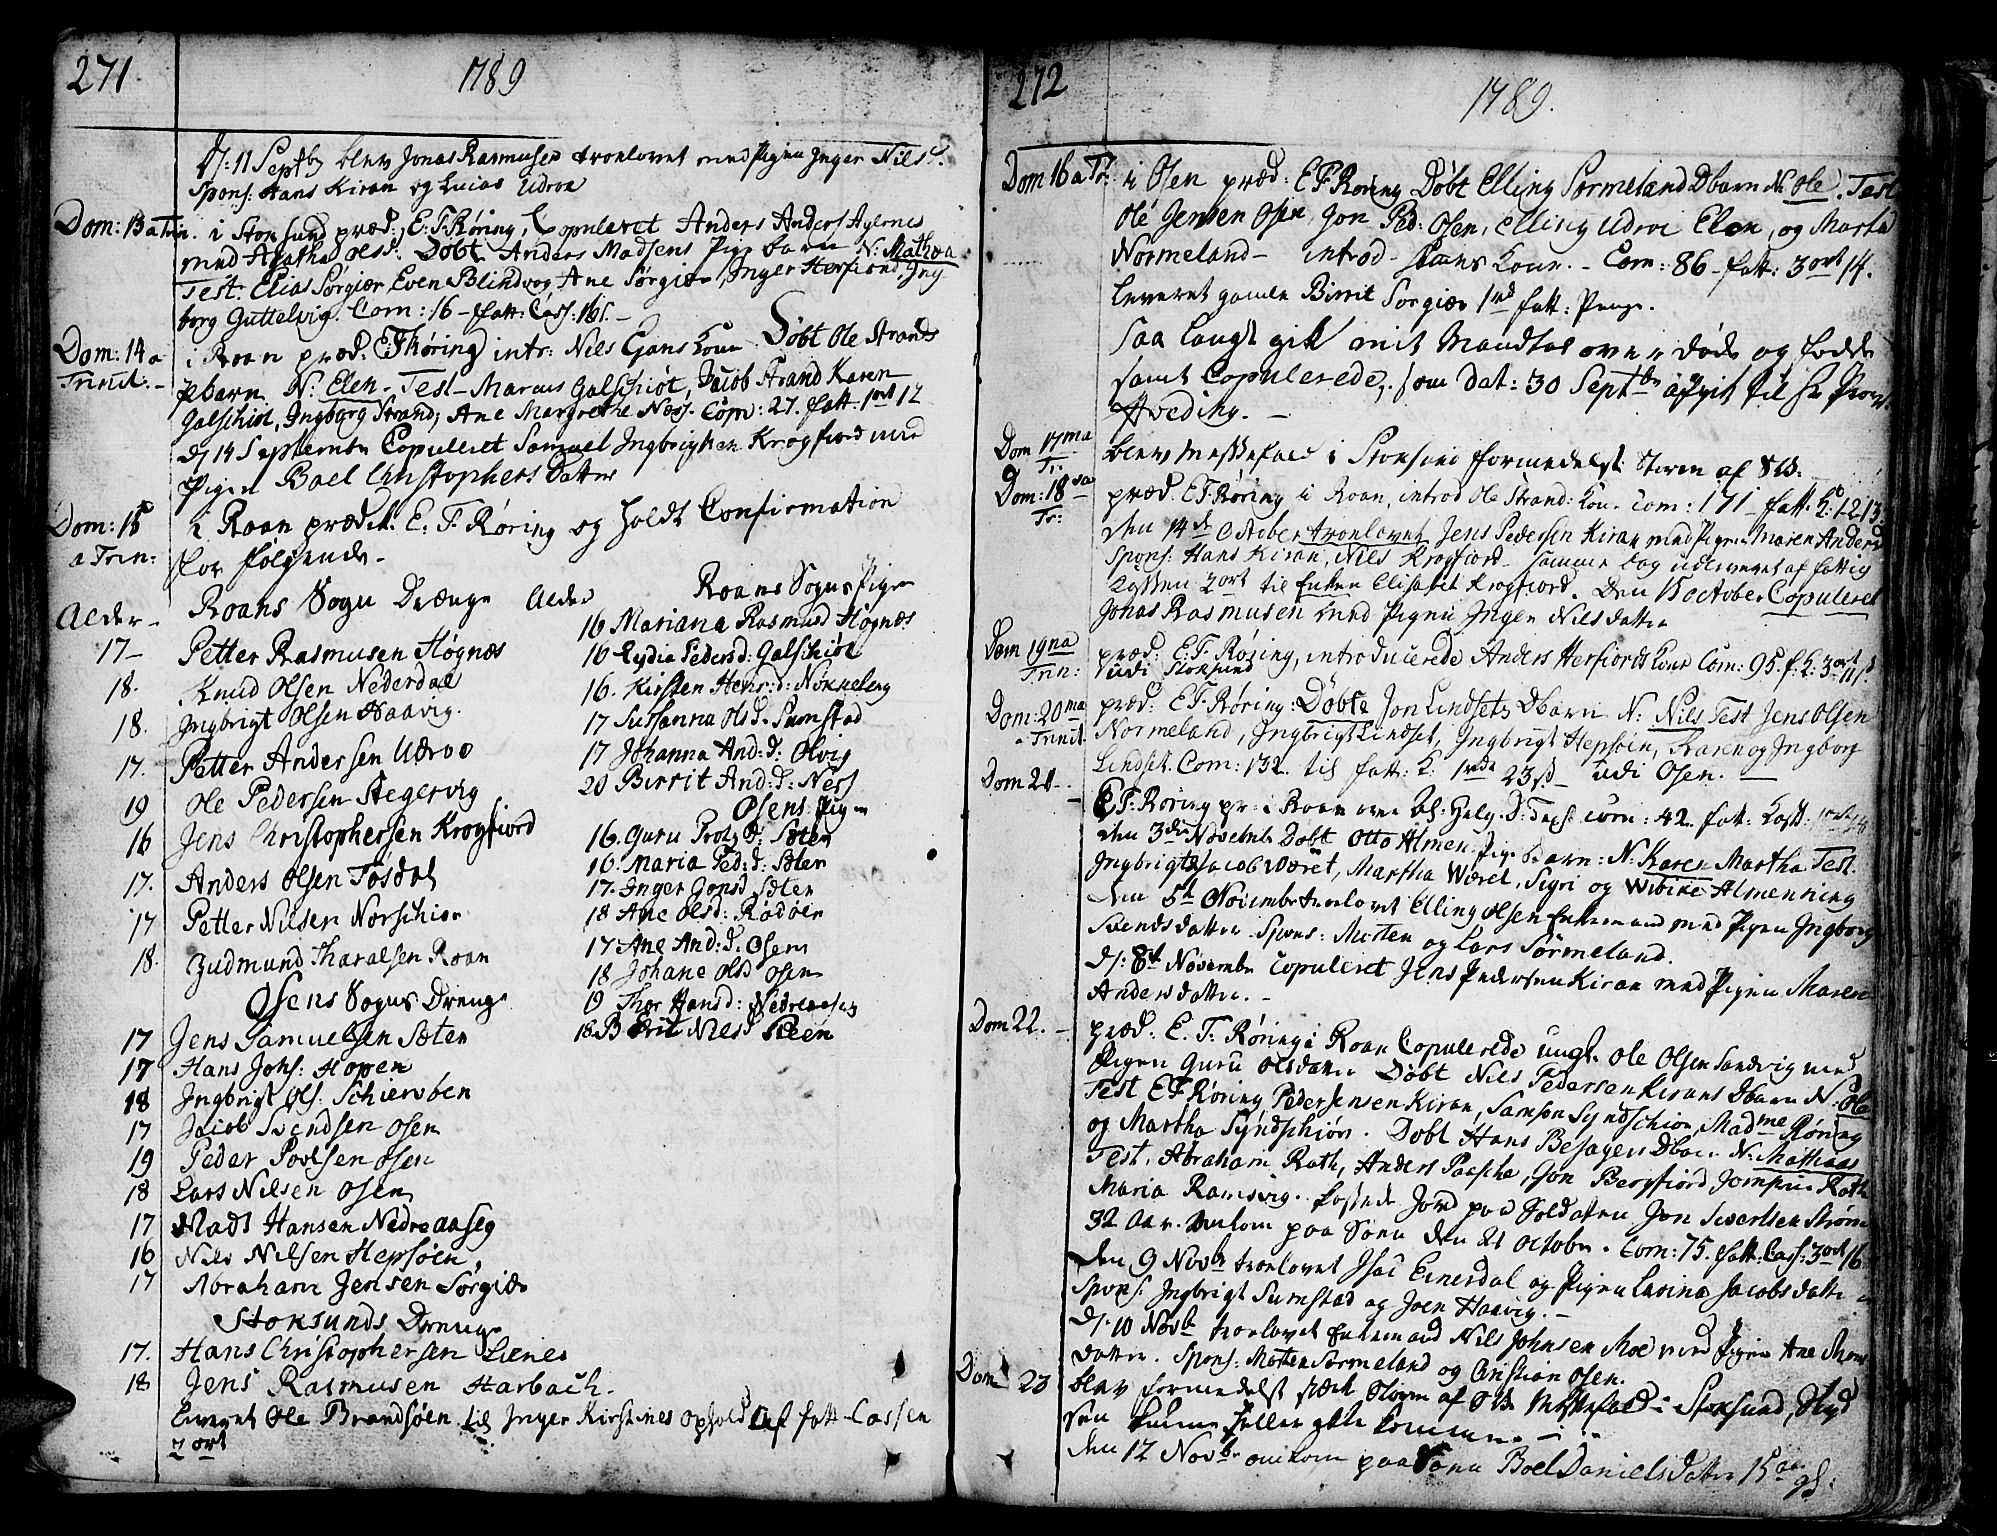 271
1789
D: 11 Septbr blev Jonas Rasmusen troelovet med Pigen Inger Nilsd.
Spons: Hans Kiran og Lucas Udroe
Dom: 13 a Trin. i Stoksund præd: E: F. Røring, Copuleret Anders Anders
med Agatha Olsd: Døbt Anders Madsens Pigebarn N: Mathea
Test: Elias Sørgiær Even Blindvog Ane Sørgiær, Inger Herfiord, Ing
borg Guttelvig. Com: 16 - fatt: Cass: 16s. -
Dom: 14 a Trinit. - i Roan præd: E F Røring intr: Nils Kone Døbt Ole Strands
Pbarn N: Elen - Test - Marcus Galschiøt, Jacob Strand Karen
Galschiøt, Ingborg Strand, Ane Margrethe Næss. Com: 27. fatt: 1 ort 12
D: 14 Septembr Copuleret Samuel Ingbrigtsen Krogfiord med
Pigen Boel Christophers Datter
Dom: 15 a Trin: i Roan prædik: E. F. Røring og holdt Confirmation
for følgende -
Alder - Roans Sogn Drænge
17 - Petter Rasmusen Høgnæs
18. Knud Olsen Nederdal
18. Ingbrigt Olsen Haavig.
17. Petter Andersen Udroe
19 Ole Pedersen Stegervig
16 Jens Christophersen Krogfiord
17. Anders Olsen Tøsdal
17 Petter Nilsen Norschiør
18. Gudmund Tharalsen Roan
Osens Sogns Drenge
17 Jens Samuelsen Sæter
17 Hans Johs: Hopen
18 Ingbrigt Ols: Schiervben
17 Jacob Svendsen Osen
19 Peder Povelsen Osen
18 Lars Nilsen Osen
17 Mads Hansen Nedreaaseg
16 Nils Nilsen Hepsøen
17 Abraham Jensen Sørgiær
Stoksunds Drenge
17. Hans Christophersen Lienes
18 Jens Rasmusen Harbach.
Leveret Ole Brandsøen til Inger Kirstines ophold af fatt-Cassen
2 ort
Alder Roans Sogns Piger
16 Mariana Rasmusd Høgnæs
16 Lydia Pedersd: Galschiøt
16. Kirsten Hens: d: Nøkkelberg
17 Susanna Olsd. Sumstad
17 Johanna And: d: Olvig
20 Birrit And: d: Ness
Osens Piger
16. Guru Prots: D: Sæter
16. Maria Ped: d: Sæter
17. Inger Jonsd Sæter
18 Ane Olsd: Rødøen
17 Ane And: d: Osen
18 Johane Olsd Osen
19 Thor Hansd: Nedreaaseg
18. Berit Nilsd Steen
272
1789.
Dom 16 a Tr: i Osen præd: E F Røring Døbt Elling Sørmeland Dbarn N: Ole. Test
Ole Jensen Osen, Jon Ped: Osen, Elling Udroe Elen, og Marta
Normeland - introd - Hans Kone. - Com: 86 - fatt: 3 ort 14.
Leveret gamle Birrit Sørgiær 1 rd fatt: Penge.
Saa langt gik mit Mandtal over døde og fødde
samt Copulerede, som dat: 30 Septbr afgik til Hr Provst
Hveding. -
Dom 17 ma Tr: blev Messefald i Stoksund formedelst Storm af SW. -
Dom: 18 va Tr: præd: E F Røring i Roan, introd Ole Strand: Kone. Com: 171 - fatt: K: 1-2 13
den 14 de October troelovet Jens Pedersen Kiran med Pigen Maren Andersd
Spons: Hans Kiran, Nils Krogfiord - samme Dag udleveret af fattig
Cassen 2 ort til Enken Elisabet Krogfiord. Den 15 October Copuleret
Jonas Rasmusen med Pigen Inger Nilsdatter
Dom 19 na Trin: præd: E: F. Røring, introducerede Anders Herfiords Kone Com: 95. f: K: 3 ort 11 s
udi Stoksund
Dom: 20 ma a Trinit. præd: E: F. Røring: Døbte Jon Lindsets Dbarn N: Nils Test Jens Olsen
Normeland, Ingbrigt Lindset, Ingbrigt Hepsøen, Karen og Ingborg
Lindset. Com: 132. til fatt: K: 1 rd 23 s udi Osen. -
Dom 21 - E F: Røring pr: i Roan com: 42. fatt:
den 3 die Novembr Døbt Otto Almen: Pigebarn: N: Karen Martha Test.
Ingbrigt Jacob Wæret, Martha Wæret, Sigri og Wibike Almenning
den 5 t Novembr troelovet Elling Olsen Enkemand med Pigen Ingborg
Svendsdatter. Spons: Morten og Lars Sørmeland.
D: 8 t Novembr Copuleret Jens Pedersen Kiran med Pigen Maren
Andersdatter. -
Dom 22. - præd. E. F. Røring i Roan Copulerede ungk. Ole Olsen Sandvig med
Pigen Guru Olsdatter Døbt Nils Pedersen Kirans Dbarn N: Ole
Test E F Røring Peder Jensen Kiran, Samson Syndschiør, Madme Røring
og Martha Syndschiør. Døbt Hans Besagers Dbarn N: Mathias
Test. Abraham Rath, Anders Paeske, Jon Bergfiord Jomfru Rath
Maria Ramsvig. kastede Jord paa Soldaten Jon Sivertsen Strøm
32 aar. omkom paa Søen den 21 October. Com: 75. fatt: Cass: 3 ort 16
den 9 Novbr troelovet Isac Einersdal og Pigen Lavina Jacobsdatter
Spons: Ingbrigt Sumstad og Joen Haavig. -
D: 10 Novbr troelovet Enkemand Nils Johnsen Moe med Pigen Ane
datter. Spons: Morten Sørmeland og Christian Osen.
Dom 23 blev formedelst stærk Storm af Messefald i Stoksund,
kunde heller ikke komme. -
den 12 Novbr omkom paa Søen Boel Danielsdatter 15 aar